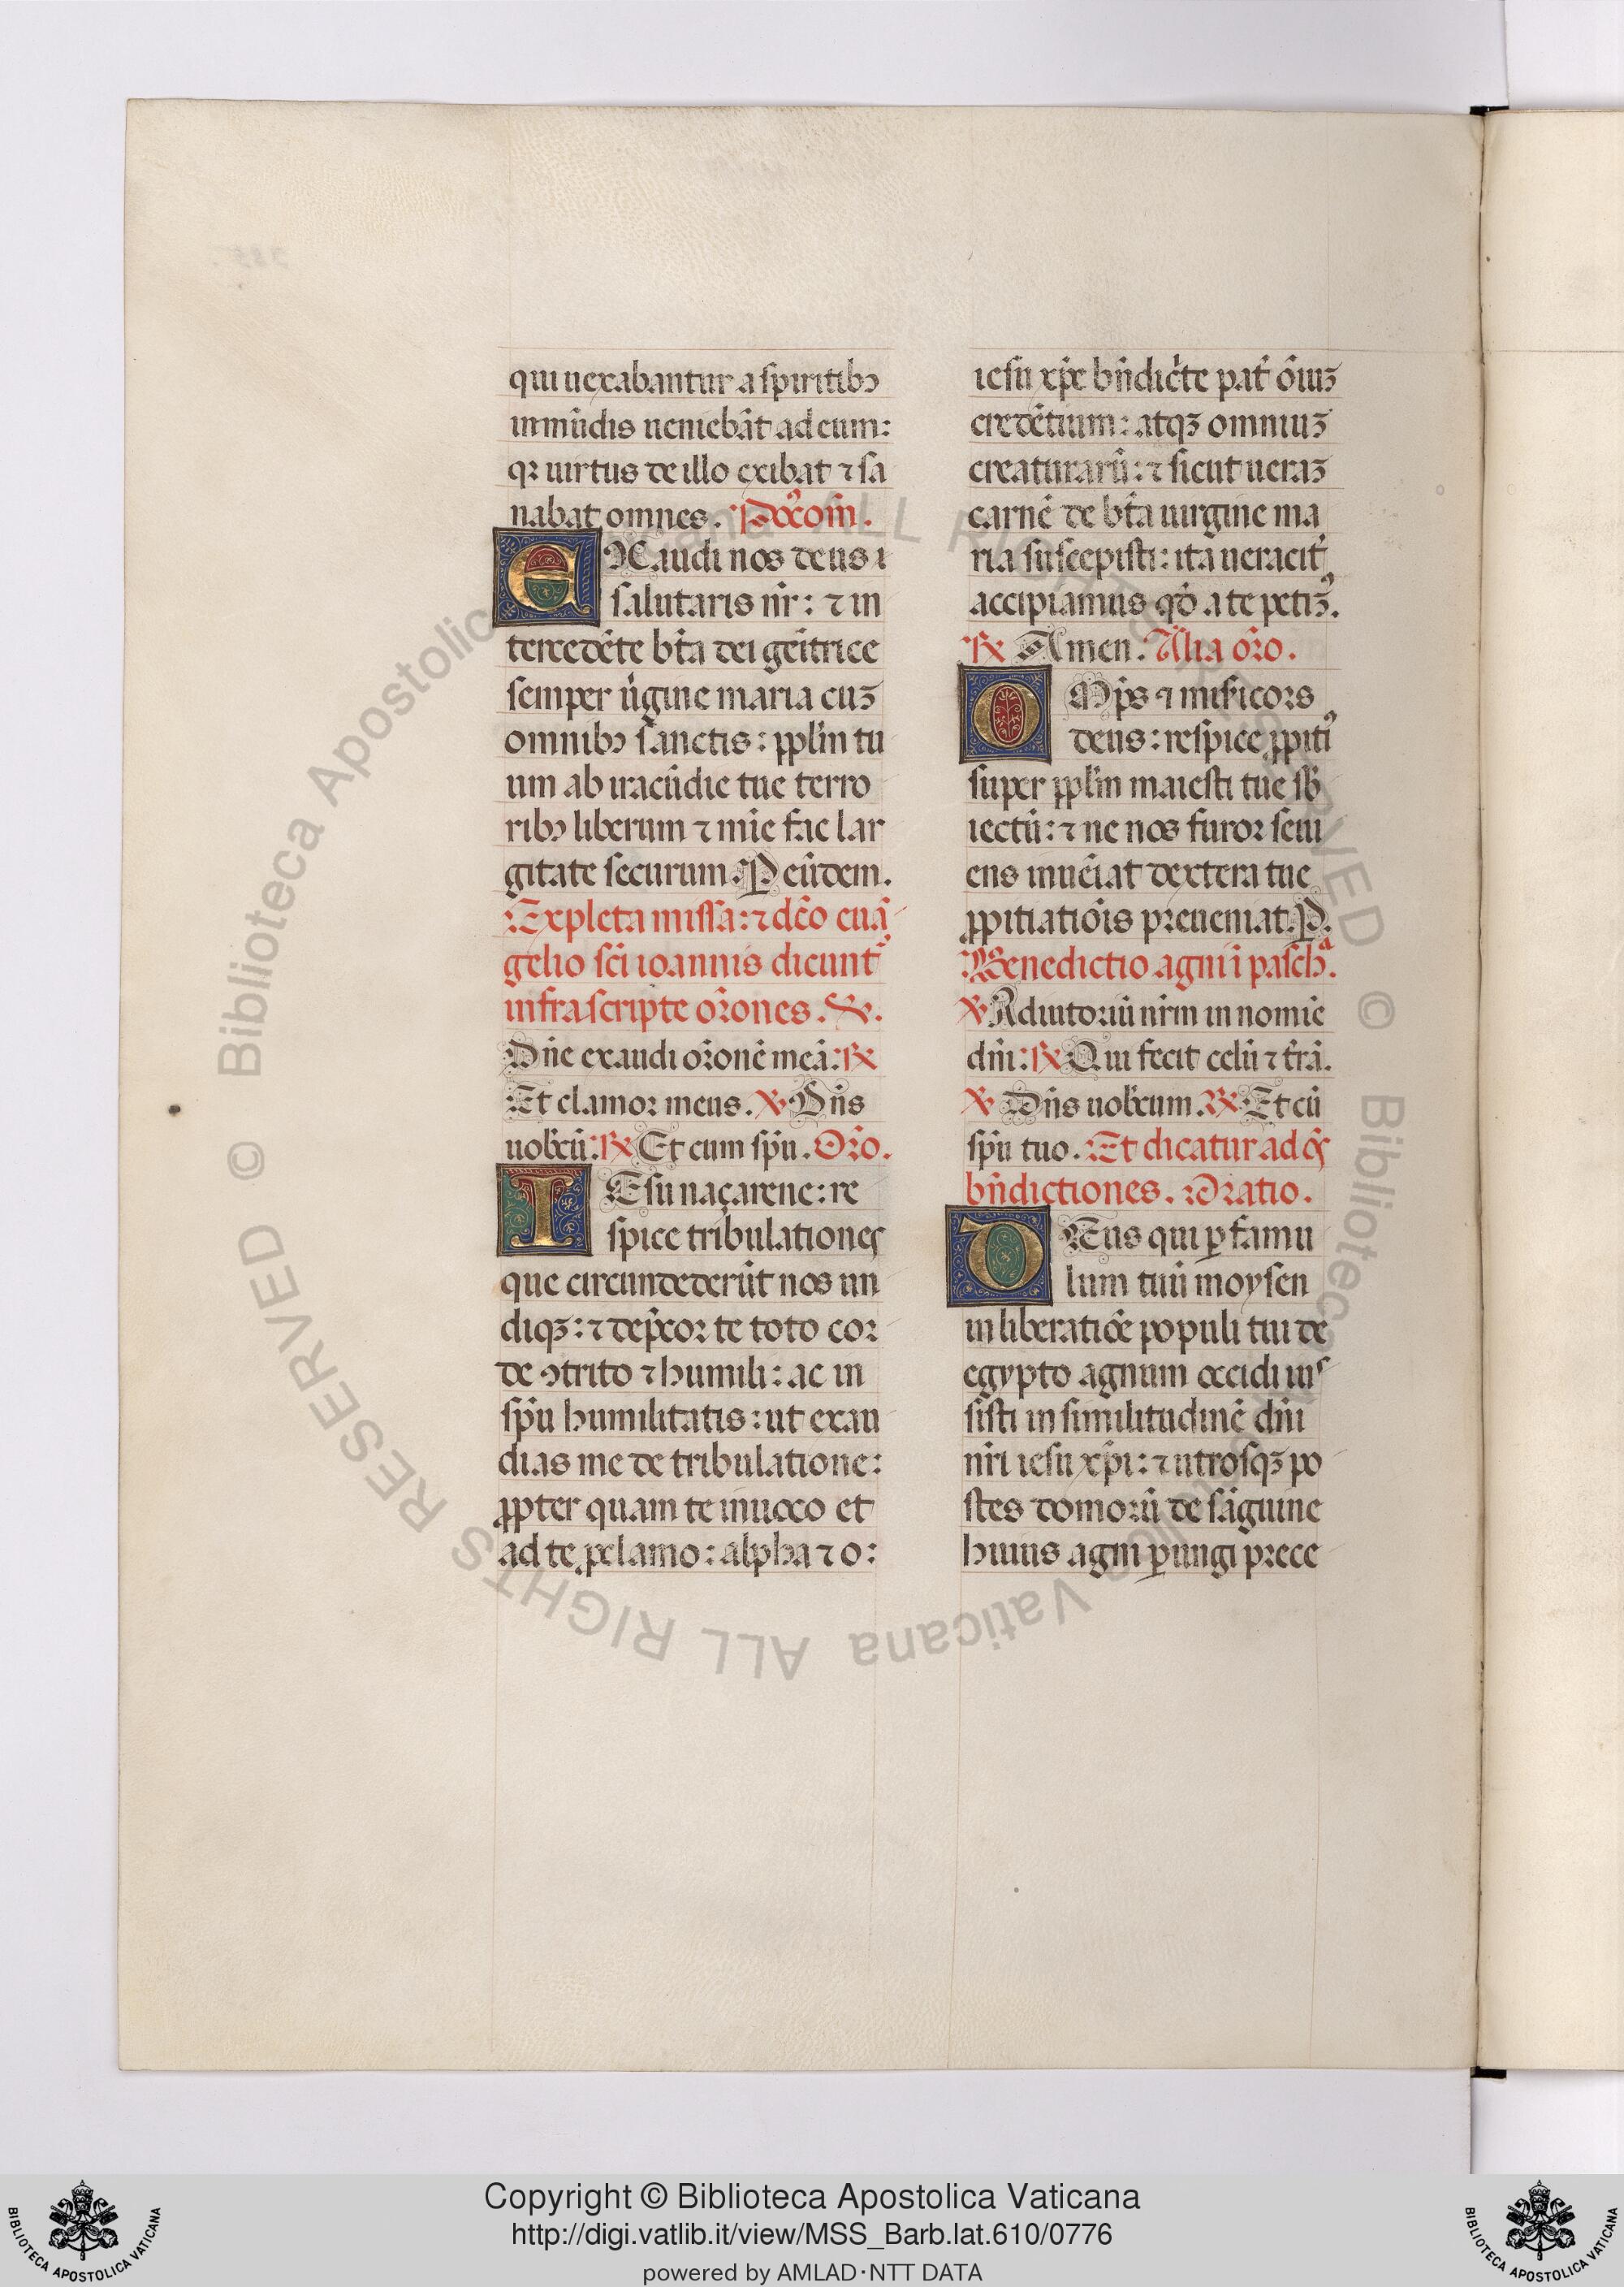 qui uexabantur a spiritibꝯ
inmūdis ueniebāt ad eum:
qꝛ uirtus de illo exibat ⁊ sa
nabat omnes. Poꝰcōm̄.
EXaudi nos deus i
salutaris nr̄: ⁊ in
tercedēte bt̄a dei geītrice
semper ūgine maria cuꝫ
omnibꝯ sanctis: pplm̄ tu
um ab iracūdie tue terro
ribꝯ liberum ⁊ mīe fac lar
gitate securum. P eūdem.
Expleta missa: ⁊ dc̄o euā
gelio sc̄i ioannis dicunt᷑
infrascripte oꝛ̄ones. ℣.
Dn̄e exaudi oꝛ̄onē meā: ℟
Et clamoꝛ meus. ℣ Dn̄s
uobc̄ū: ℟ Et cum sp̄u. Oꝛ̄o.
IEsu naçarene: re
spice tribulationes
que circundederūt nos un
diqꝫ: ⁊ dep̄coꝛ te toto coꝛ
de ꝯtrito ⁊ humili: ac in
sp̄u humilitatis: ut exau
dias me de tribulatione:
ꝓpter quam te inuoco et
ad te ꝓclamo: alpha ⁊ o:
iesu xp̄e bn̄dic̄te pat᷑ ōiuꝫ
credētium: atqꝫ omniuꝫ
creaturarū: ⁊ sicut ueraꝫ
carnē de bt̄a uirgine ma
ria suscepisti: ita ueracit᷑
accipiamus qd̄ a te petimꝰ.
℟ Amen. Alia oꝛ̄o.
OMp̄s ⁊ mis̄icoꝛs
deus: respice ꝓpitiꝰ
super pplm̄ maiesti tue sb̄
iectū: ⁊ ne nos furoꝛ seui
ens inuēiat dextera tue
ꝓpitiatiōis pꝛeueniat. P.
Benedictio agni ī paschᵃ.
℣ Adiutoꝛiū nr̄m in nomīe
dn̄i: ℟ Qui fecit celū ⁊ t̄rā.
℣ Dn̄s uobc̄um. ℟ Et cū
sp̄u tuo. Et dicatur ad oēs
bn̄dictiones. Oꝛatio.
DEus qui ꝑ famu
lum tuū moysen
in liberatiōe populi tui de
egypto agnum occidi ius
sisti in similitudinē dn̄i
nr̄i iesu xp̄i: ⁊ utrosqꝫ po
stes domoꝛū de sāguine
huius agni ꝑungi pꝛece
Copyright © Biblioteca Apostolica Vaticana
http://digi.vatlib.it/view/MSS_Barb.lat.610/0776
powered by AMLAD·NTT DATA
BIBLIOTECA APOSTOLICA VATICANA
BIBLIOTECA APOSTOLICA VATICANA
© Biblioteca Apostolica Vaticana ALL RIGHTS RESERVED
© Biblioteca Apostolica Vaticana ALL RIGHTS RESERVED